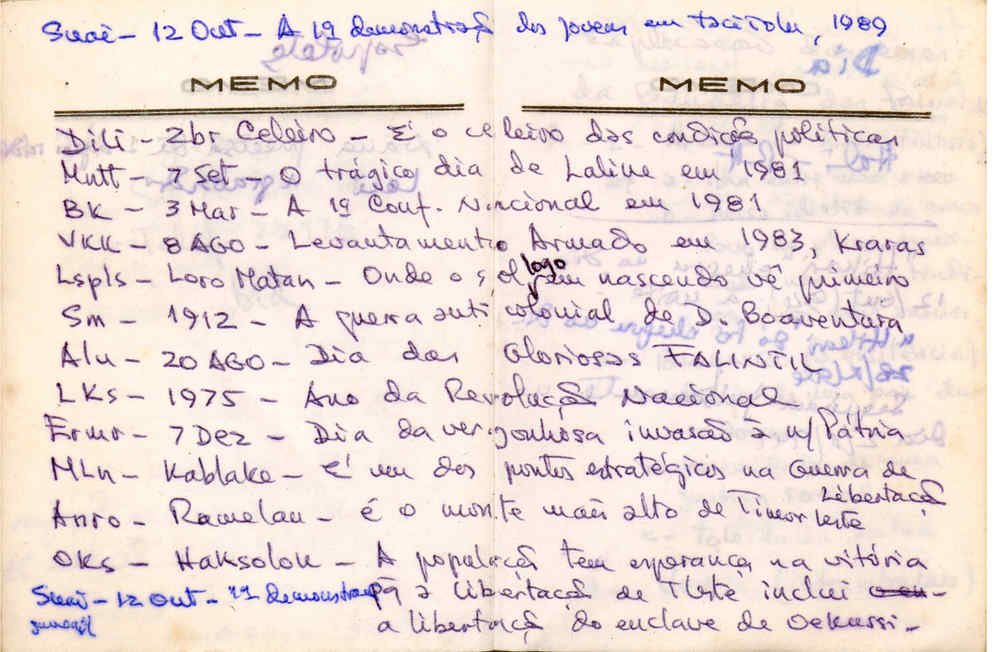 Suai - 12 Out - A 1ª demonstração dos jovens em 1989
MEMO MEMO
Dili - Celeiro - É o celeiro das condições políticas
Mntt - 7 Set - O trágico dia de Laline em 1981
BK - 3 Mar - A 1ª Conf. Nacional em 1981
VKK - 8 AGO - Levantamento Armado em 1983, Kraras
Lspls - Loro Matan - Onde o sol logo em nascendo vê primeiro
Sm - 1912 - A guerra anti colonial de D. Boaventura
Alu - 20 AGO - Dia das Gloriosas FALINTIL
LKs - 1975 - Ano da Revolução Nacional
Ermr - 7 Dez - Dia da vergonhosa invasão à n/ Pátria
MLn - Kablake - é um dos pontos estratégicos na Guerra de
Libertação
Anro - Ramelau - é o monte mais alto de Timor Leste
OKs - Haksolok - A população tem esperança na vitória
Suai - 12 Out - 1ª demonstração
pa a libertação de TLeste inclui
juvenil
a libertação do enclave de Oekussi -